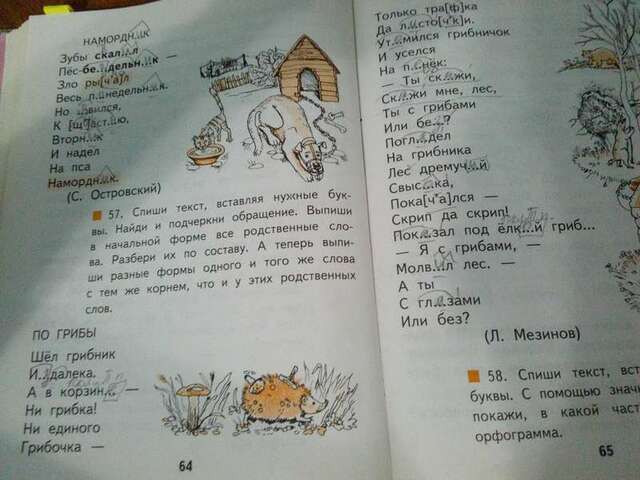 НАМОРДН..К
Зубы скал..л
Пёс-бе..дельн..к —
Зло ры[ч'а]л
Весь п..недельн..к.
Но ..вился,
К [щ']аст..ю,
Вторн..к
И надел
На пса
Намордн..к.
(С. Островский)
57. Спиши текст, вставляя нужные бук-
вы. Найди и подчеркни обращение. Выпиши
в начальной форме все родственные сло-
ва. Разбери их по составу. А теперь выпи-
ши разные формы одного и того же слова
с тем же корнем, что и у этих родственных
слов.
ПО ГРИБЫ
Шёл грибник
И..далека.
А в корзин.. —
Ни грибка!
Ни единого
Грибочка —
64
Только тра[ф]ка
Да л..сто[ч'к]и.
Ут..мился грибничок
И уселся
На п..нёк:
— Ты ск..жи,
Ск..жи мне, лес,
Ты с грибами
Или бе..?
Погл..дел
На грибника
Лес дремуч..й
Свыс..ка,
Пока[ч'а]лся —
Скрип да скрип!
Пок..зал под ёлк..й гриб...
— Я с грибами, —
Молв..л лес. —
А ты
С гл..зами
Или без?
(Л. Мезинов)
58. Спиши текст, вст
буквы. С помощью знач
покажи, в какой част
орфограмма.
65